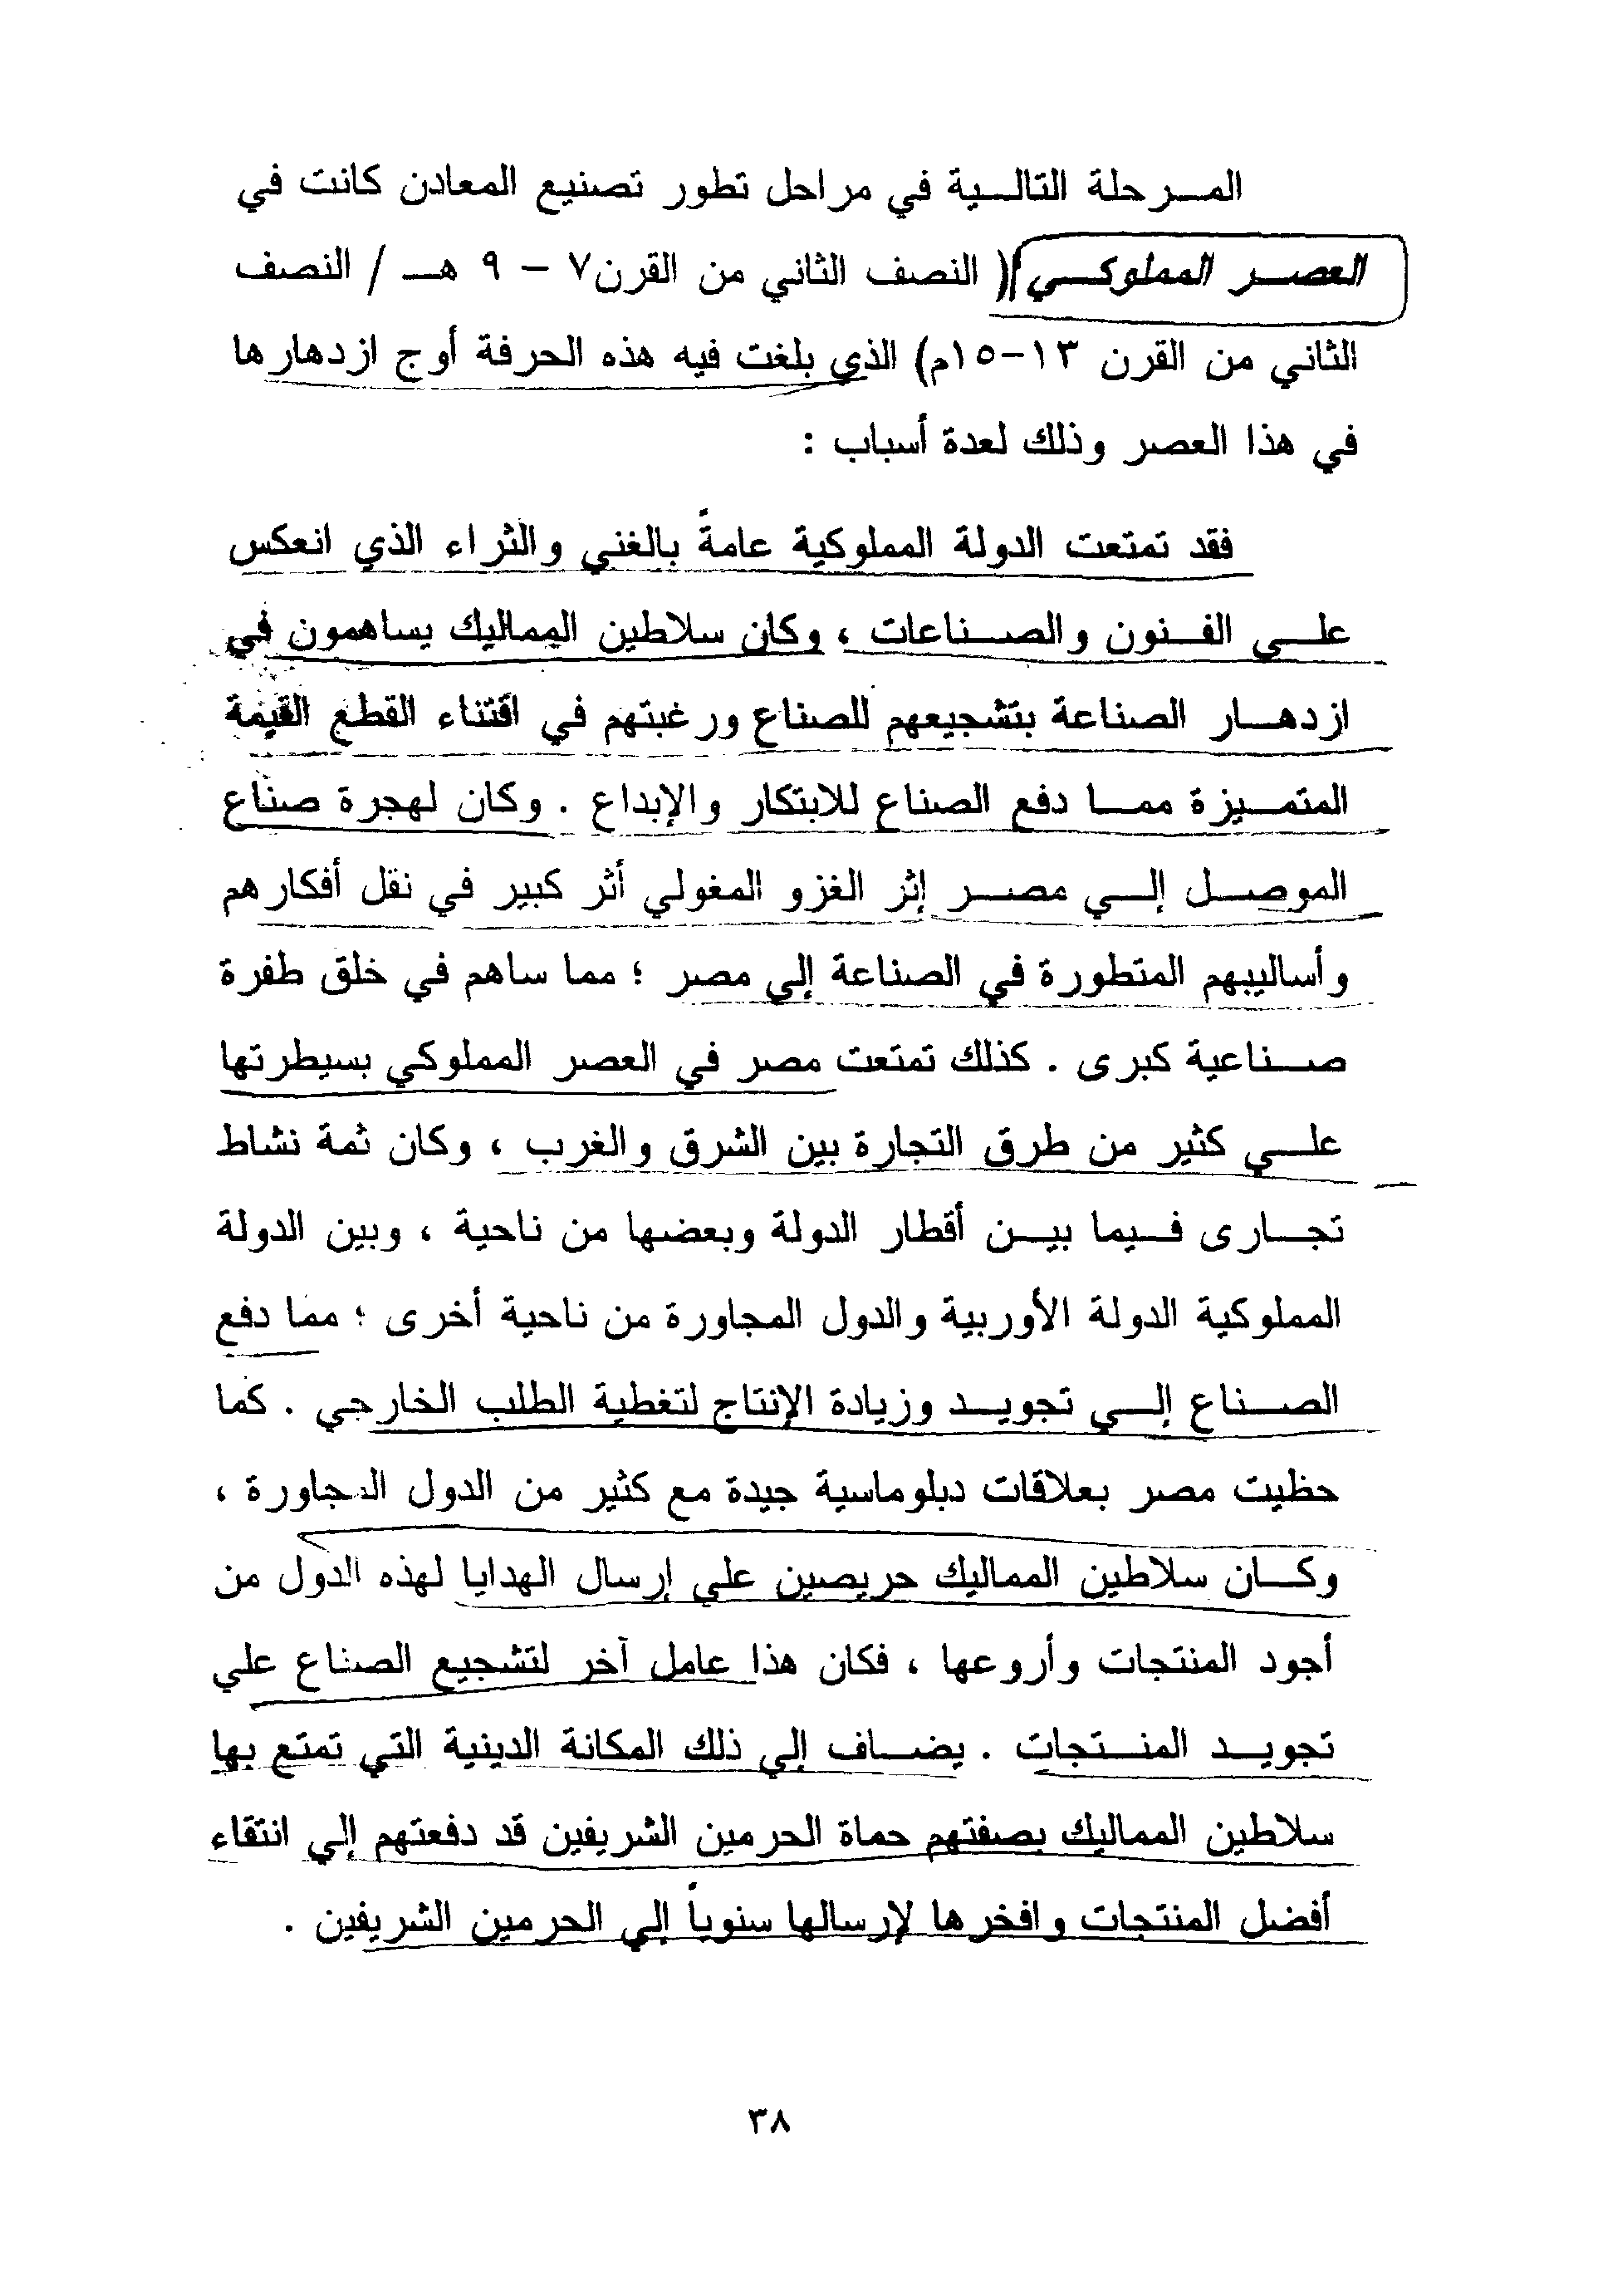 المرحلة التالية في مراحل تطور تصنيع المعادن كانت في
العصر المملوكي ( النصف الثاني من القرن٧ – ٩ هـ / النصف
الثاني من القرن ١٣-١٥م) الذي بلغت فيه هذه الحرفة أوج ازدهارها
في هذا العصر وذلك لعدة أسباب :
فقد تمتعت الدولة المملوكية عامةً بالغني والثراء الذي انعكس
علي الفنون والصناعات ، وكان سلاطين المماليك يساهمون في
ازدهار الصناعة بتشجيعهم للصناع ورغبتهم في اقتناء القطع القيمة
المتميزة مما دفع الصناع للابتكار والإبداع . وكان لهجرة صناع
الموصل إلي مصر إثر الغزو المغولي أثر كبير في نقل أفكارهم
وأساليبهم المتطورة في الصناعة إلي مصر ؛ مما ساهم في خلق طفرة
صناعية كبرى . كذلك تمتعت مصر في العصر المملوكي بسيطرتها
علي كثير من طرق التجارة بين الشرق والغرب ، وكان ثمة نشاط
تجارى فيما بين أقطار الدولة وبعضها من ناحية ، وبين الدولة
المملوكية الدولة الأوربية والدول المجاورة من ناحية أخرى ؛ مما دفع
الصناع إلي تجويد وزيادة الإنتاج لتغطية الطلب الخارجي . كما
حظيت مصر بعلاقات دبلوماسية جيدة مع كثير من الدول المجاورة ،
وكان سلاطين المماليك حريصين علي إرسال الهدايا لهذه الدول من
أجود المنتجات وأروعها ، فكان هذا عامل آخر لتشجيع الصناع علي
تجويد المنتجات . يضاف إلي ذلك المكانة الدينية التي تمتع بها
سلاطين المماليك بصفتهم حماة الحرمين الشريفين قد دفعتهم إلي انتقاء
أفضل المنتجات وافخرها لإرسالها سنوياً إلي الحرمين الشريفين .
٣٨